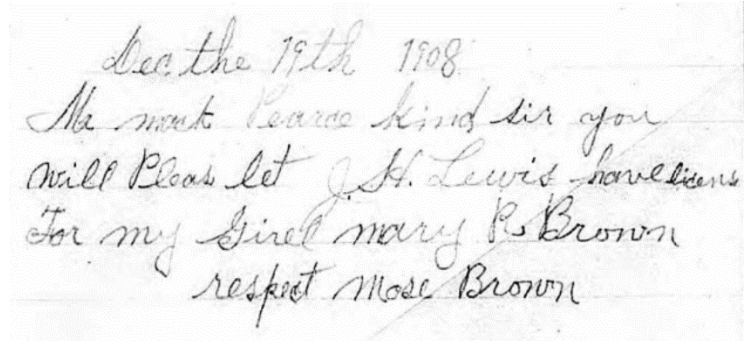 Dec the 19th 1908
Mr mack Pearce kind sir you
will Pleas let J. H. Lewis have lisens
For my Girel mary R. Brown
respect Mose Brown